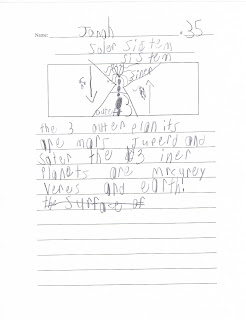 Name: Jonah .35
Soler Sistem
sistem
iner
outer
the 3 outer planits
are mars Juperd and
Sater the 3 iner
Planets are mrcurey
Veres and earth.
the Surfase of